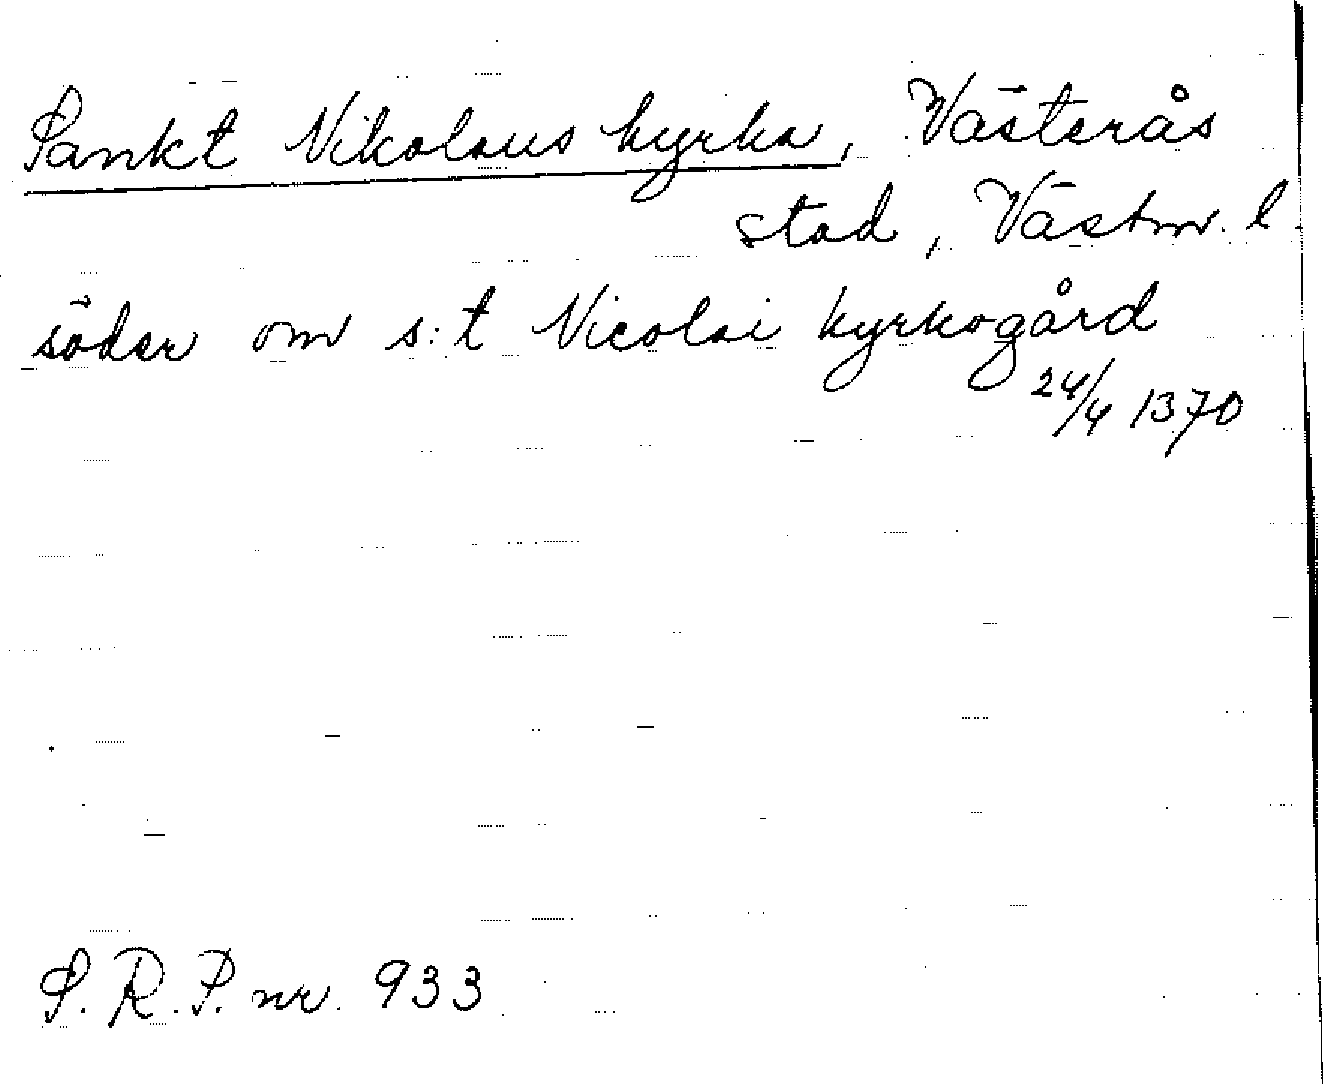 Sankt Nikolaus kyrka, Västerås
stad, Västm. l.
söder om s:t Nicolai kyrkogård
24/4 1370
S. R. P. nr. 933